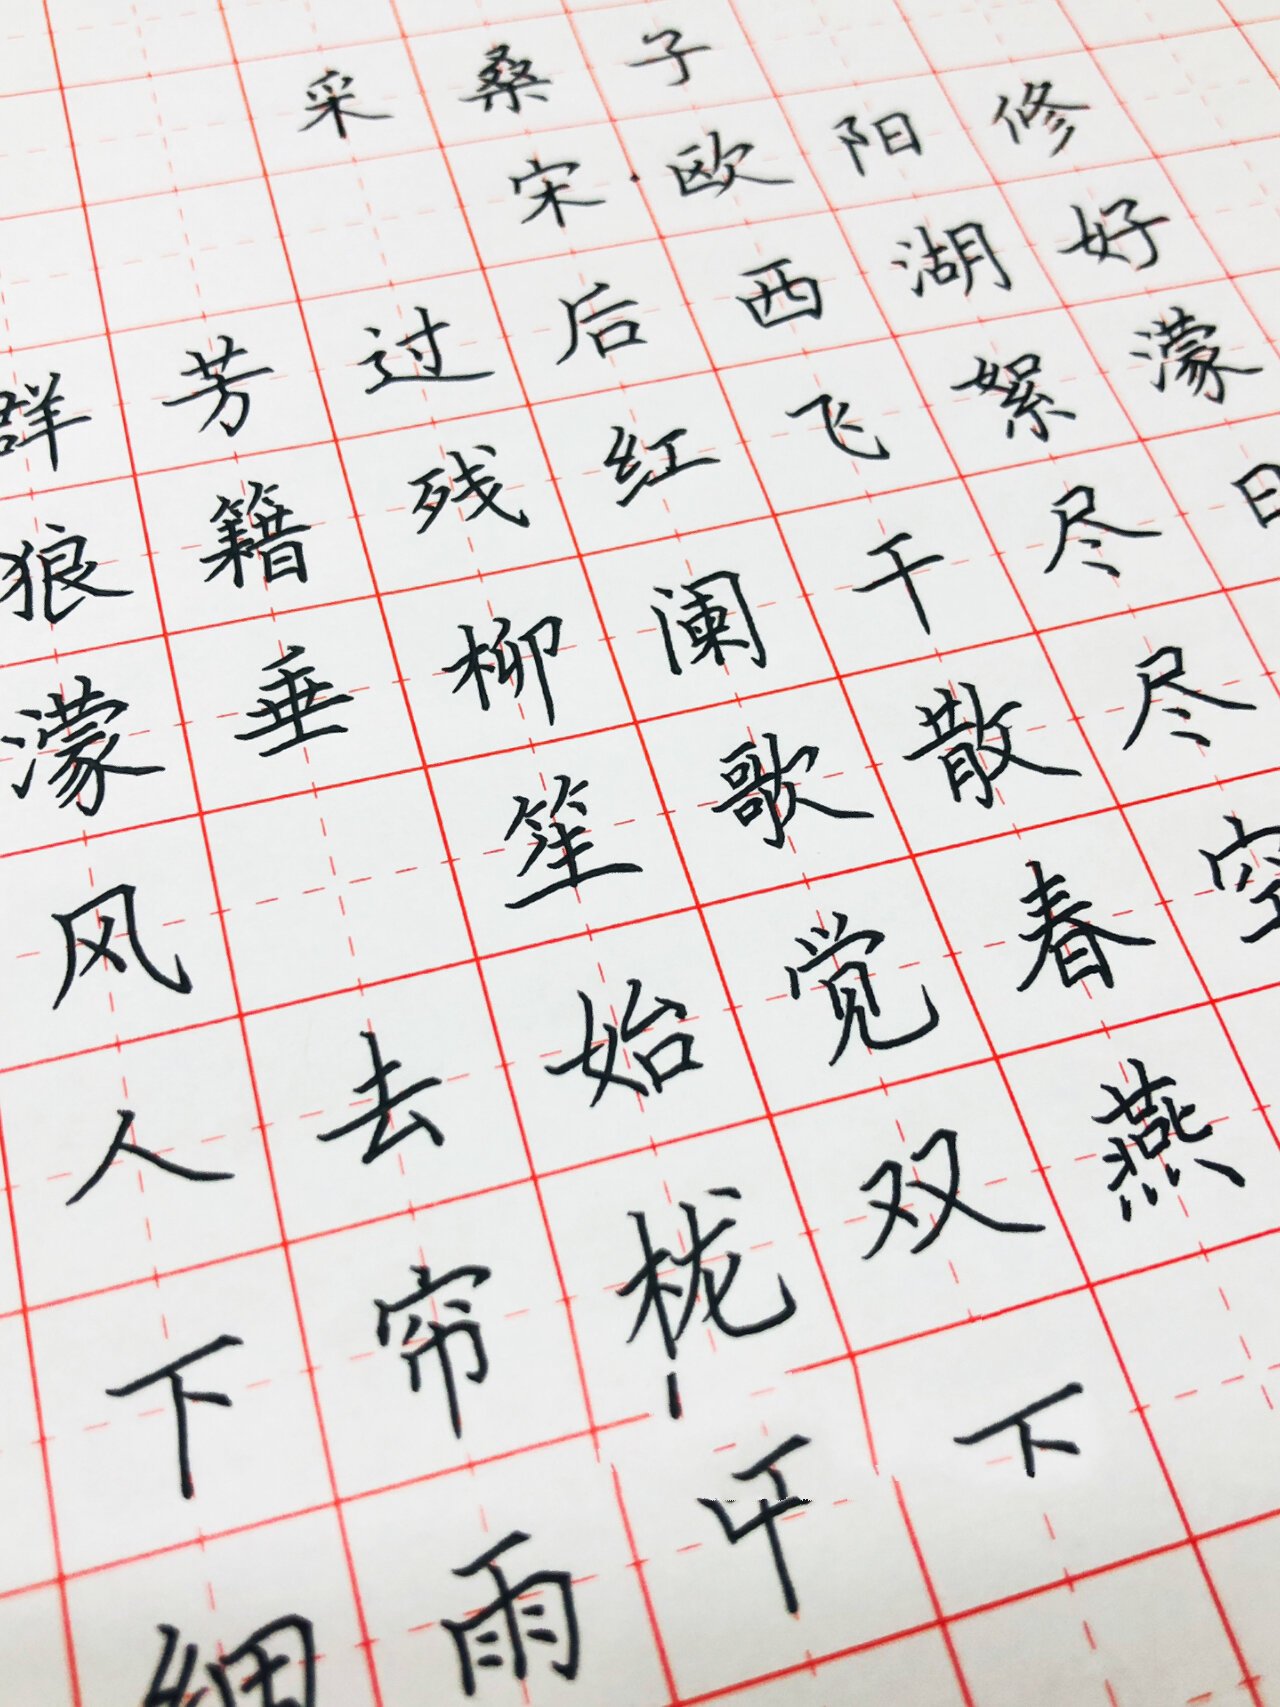 采桑子
宋·欧阳修
群芳过后西湖好
狼籍残红飞絮濛
濛垂柳阑干尽日
风 笙歌散尽
人去始觉春空
下帘栊双燕
细雨